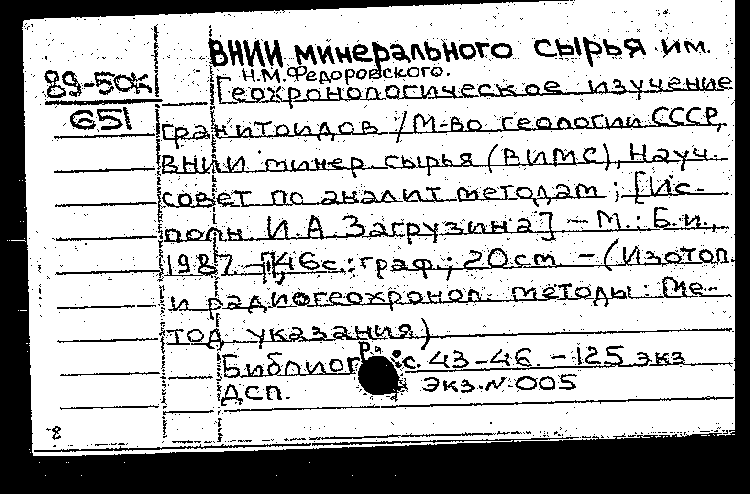 ВНИИ минерального сырья им.
Н.М.Федоровского.
89-50к
651
Геохронологическое изучение
гранитоидов / М-во геологии СССР,
ВНИИ минер. сырья (ВИМС), Науч.
совет по аналит методам ; [Ис-
полн. И.А. Загрузина] - М.: Б.и.,
1987. - 46 с.: граф.; 20 см - (Изотоп.
и радиогеохронол. методы : Ме-
тод. указания)
Библиогр.: с. 43-46. - 125 экз
ДСП. Экз. N: 005
8